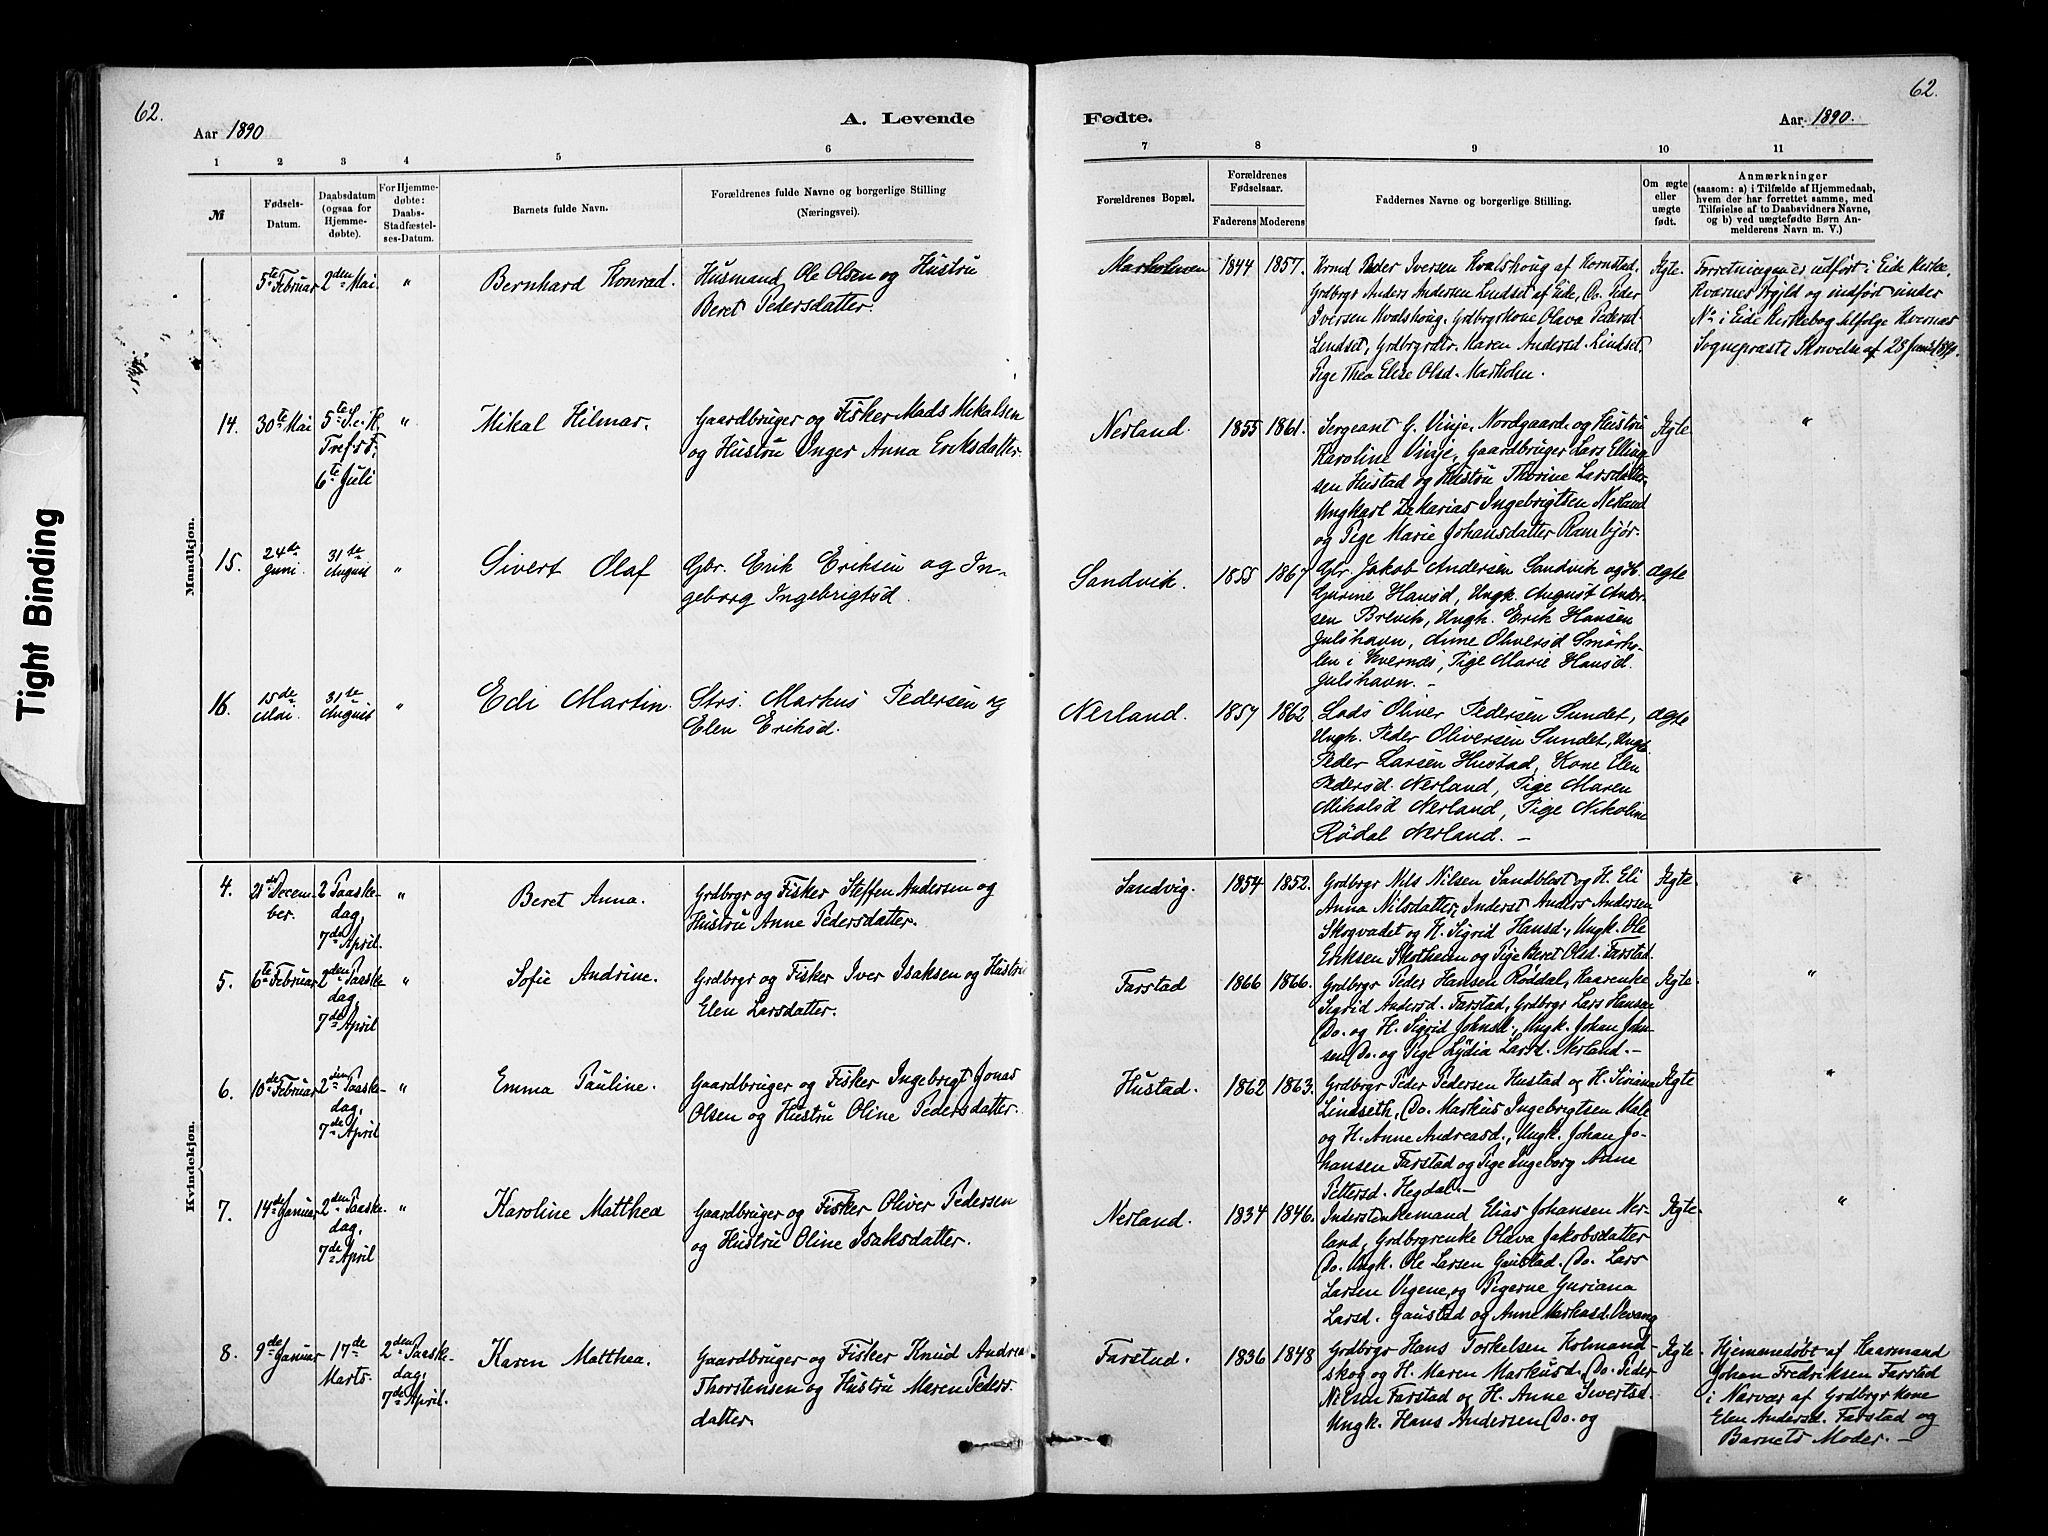 62.
Aar 1890
A. Levende
1 2 3 4 5 6 7
№
Fødsels-
Datum.
Daabsdatum
(ogsaa for
Hjemme-
døbte).
For Hjemme-
døbte:
Daabs-
Stadfæstel-
ses-Datum.
Barnets fulde Navn.
Forældrenes fulde Navne og borgerlige Stilling
(Næringsvei).
Mandkjøn.
5te Februar 2den Mai. " Bernhard Konrad. Husmand Ole Olsen og Hustru
Beret Pedersdatter.
14. 30te Mai 5te S. e. " Mikal Hilmar. Gaardbruger og Fisker Mads Mikalsen
Trefst. og Hustru Inger Anna Eriksdatter.
6te Juli
15. 24de Juni. 31te August " Sivert Olaf Gbr. Erik Eriksen og In-
geborg Ingebrigtsd.
16. 15de Mai. 31te August " Edi Martin. Strs. Markus Pedersen og
Elen Eriksd.
Kvindekjøn.
4. 21de Decem- 2 Paaske- " Beret Anna. Grdbrgr og Fisker Steffen Andersen og
ber. dag, Hustru Anne Pedersdatter.
7de April.
5. 6te Februar 2den Paaske- " Sofie Andrine. Grdbrgr og Fisker Iver Isaksen og Hustru
dag, Elen Larsdatter.
7de April
6. 10de Februar 2den Paaske- " Emma Pauline. Gaardbruger og Fisker Ingebrigt Jonas
dag, Olsen og Hustru Oline Pedersdatter.
7de April
7. 14de Januar 2den Paaske- " Karoline Matthea Gaardbruger og Fisker Oliver Pedersen
dag, og Hustru Oline Isaksdatter.
7de April
8. 9de Januar 17de 2den Paaske- Karen Matthea. Gaardbruger og Fisker Knud Andreas
Marts. dag, Thorstensen og Hustru Maren Peders-
7de April. datter.
62.
Fødte.
Aar 1890.
7 8 9 10 11
Forældrenes Bopæl.
Forældrenes
Fødselsaar.
Faderens Moderens
Faddernes Navne og borgerlige Stilling.
Om ægte
eller
uægte
født.
Anmærkninger
(saasom: a) i Tilfælde af Hjemmedaab,
hvem der har forrettet samme, med
Tilføielse af to Daabsvidners Navne,
og b) ved uægtefødte Børn An-
melderens Navn m. V.)
Marholmen 1844 1857. Krmd Peder Iversen Kvalshoug af Kornstad, Ægte. Forretningen er udført i Eide Kirke,
Grdbrgr Anders Andersen Lindset af Eide, Do. Peder Kværnes Prgjld og indført under
Iversen Kvalshoug, Grdbrgrkone Olava Pedersd. No i Eide Kirkebog ifølge Kvernæs
Lindset, Grdbrgrdtr. Karen Andersd. Lindset, Sognepræsts Skrivelse af 28 1890.
Pige Thea Elise Olsd. Marholm.
Nerland. 1855 1861. Sergeant G. Vinje, Nordgaard og Hustru Ægte "
Karoline Vinje, Gaardbruger Lars Elling-
sen Hustad og Hustru Thorine Larsdatter,
Ungkarl Zakarias Ingebrigtsen Nerland
og Pige Marie Johansdatter Ranebjør.
Sandvik. 1855 1867 Gbr. Jakob Andersen Sandvik og H. ægte
Gurine Hansd, Ungk. August Ander-
sen Brevik, Ungk. Erik Hansen
Julshavn, Anne Oliversd Smørho-
len i Kvernes, Pige Marie Hansd.
Julshavn. —
Nerland. 1857 1862 Lods Oliver Pedersen Sundet, ægte
Ungk. Peder Oliversen Sundet, Ungk.
Peder Larsen Hustad, Kone Elen
Pedersd. Nerland, Pige Maren
Mikalsd Nerland, Pige Nikoline
Rødal Nerland. —
Sandvig. 1854 1852. Grdbrgr Nils Nilsen Sandblost og H. Eli Ægte. "
Anna Nilsdatter, Inderst Anders Andersen
Skogvadet og H. Sigrid Hansd., Ungk. Ole
Eriksen Skotheim og Pige Beret Olsd. Farstad.
Farstad 1866 1866. Grdbrgr Peder Hansen Røddal, Kaarenke Ægte. "
Sigrid Andersd. Farstad, Grdbrgr Lars Hansen
Do. og H. Sigrid Johnsd., Ungk. Johan John-
sen Do. og Pige Lydia Larsd. Nerland. —
Hustad. 1862 1863. Grdbrgr Peder Pedersen Hustad og H. Siviana Ægte "
Lindseth, Do. Markus Ingebrigtsen Male
og H. Anne Andreasd., Ungk. Johan Jo-
hansen Farstad og Pige Ingeborg Anne
Pettersd. Hegdal. —
Nerland. 1834 1846. Inderst Enkemand Elias Johansen Ner- Ægte. "
land, Grdbrgrenke Olava Jakobsdatter
Do. Ungk. Ole Larsen Gaustad. Do. Lars
Larsen Vigene, og Pigerne Guriana
Larsd. Gaustad og Anne Markusd. Vevang
Farstad. 1836 1848 Grdbrgr Hans Torkelsen Kolmand- Ægte. Hjemmedøbt af Kaarmand
skog og H. Maren Markusd. Do. Peder Johan Fredriksen Farstad
Nilsen Farstad og H. Anne Sivertsd. i Nærvær af Grdbrgrkone
Ungk. Hans Andersen Do. og Elen Andersd. Farstad og
Barnets Moder. —
Tight Binding